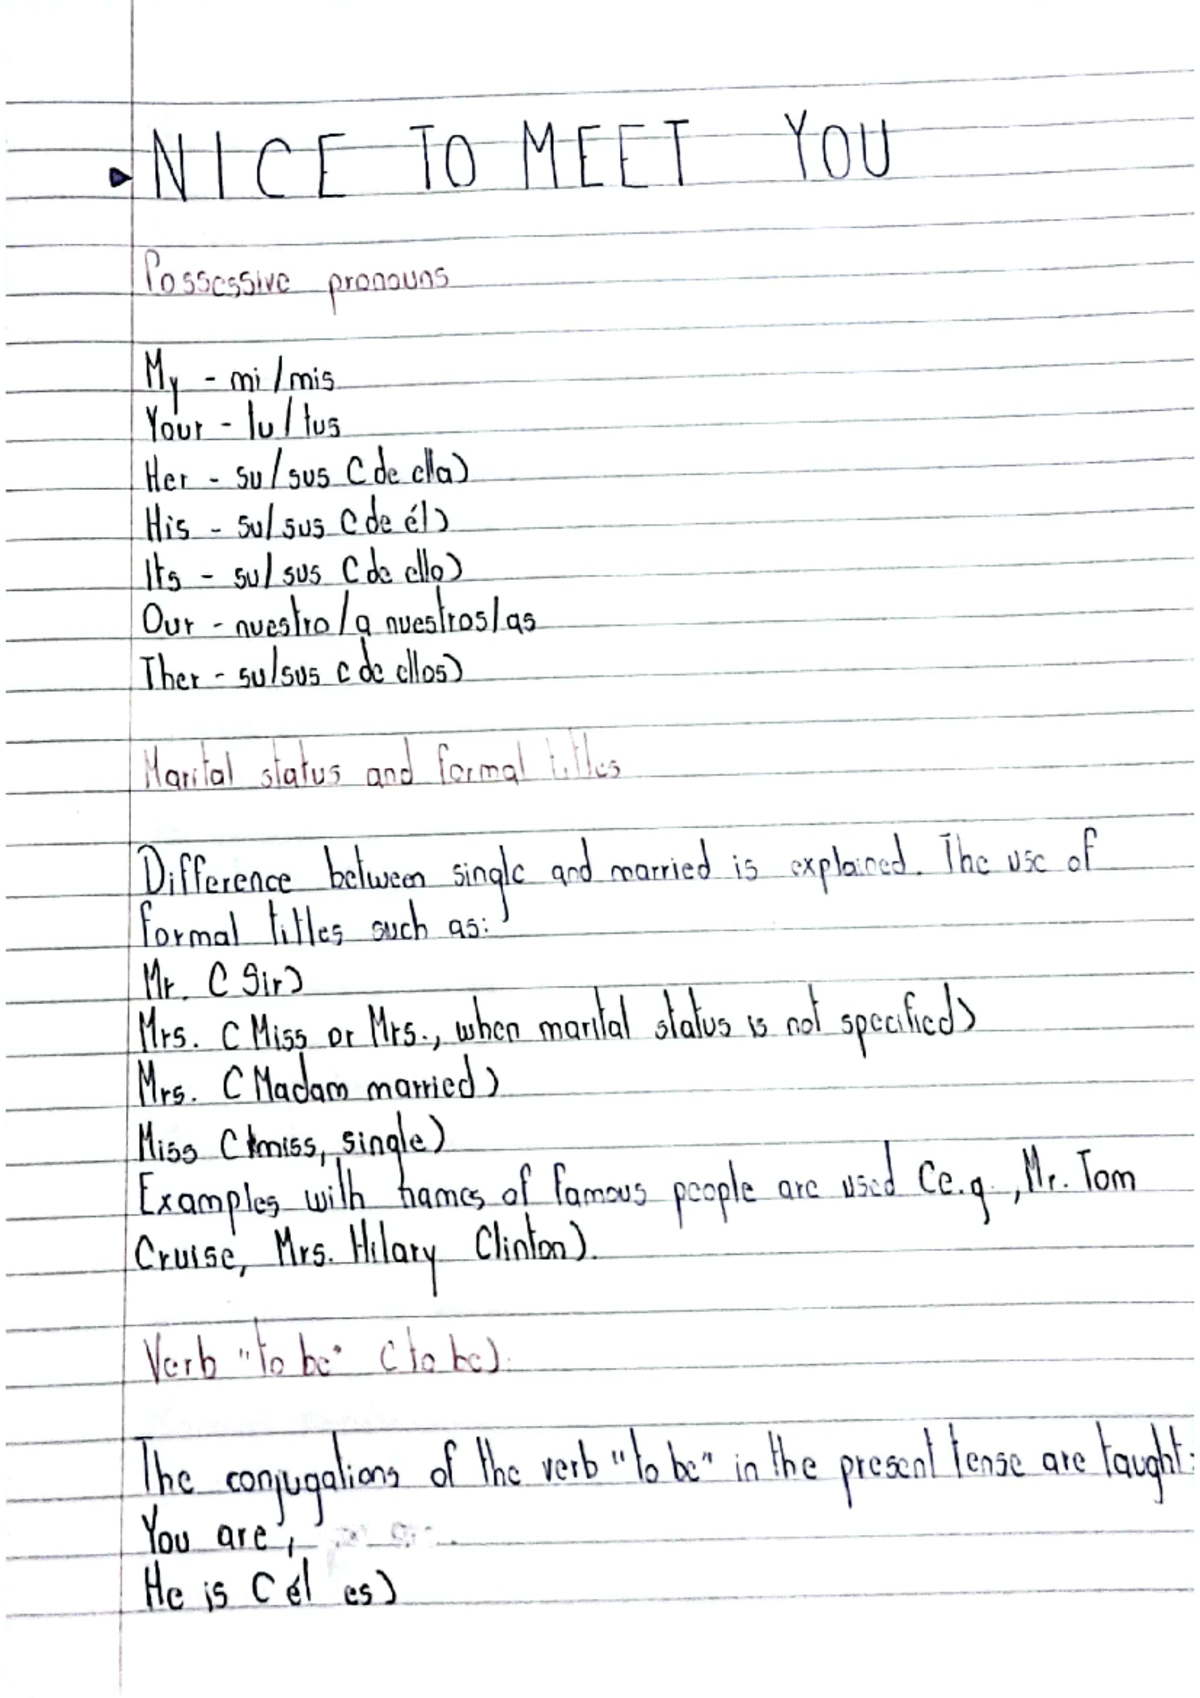 NICE TO MEET YOU
Possessive pronouns
My - mi/mis
Your - tu/tus
Her - su/sus (de ella)
His - su/sus (de él)
Its - su/sus (de ello)
Our - nuestro/a nuestros/as
Ther - su/sus (de ellos)
Marital status and formal titles
Difference between single and married is explained. The use of
formal titles such as:
Mr. (Sir)
Mrs. (Miss or Mrs., when marital status is not specified)
Mrs. (Madam married)
Miss (miss, single)
Examples with names of famous people are used (e.g., Mr. Tom
Cruise, Mrs. Hilary Clinton).
Verb "to be" (to be).
The conjugations of the verb "to be" in the present tense are taught:
You are,
He is (él es)